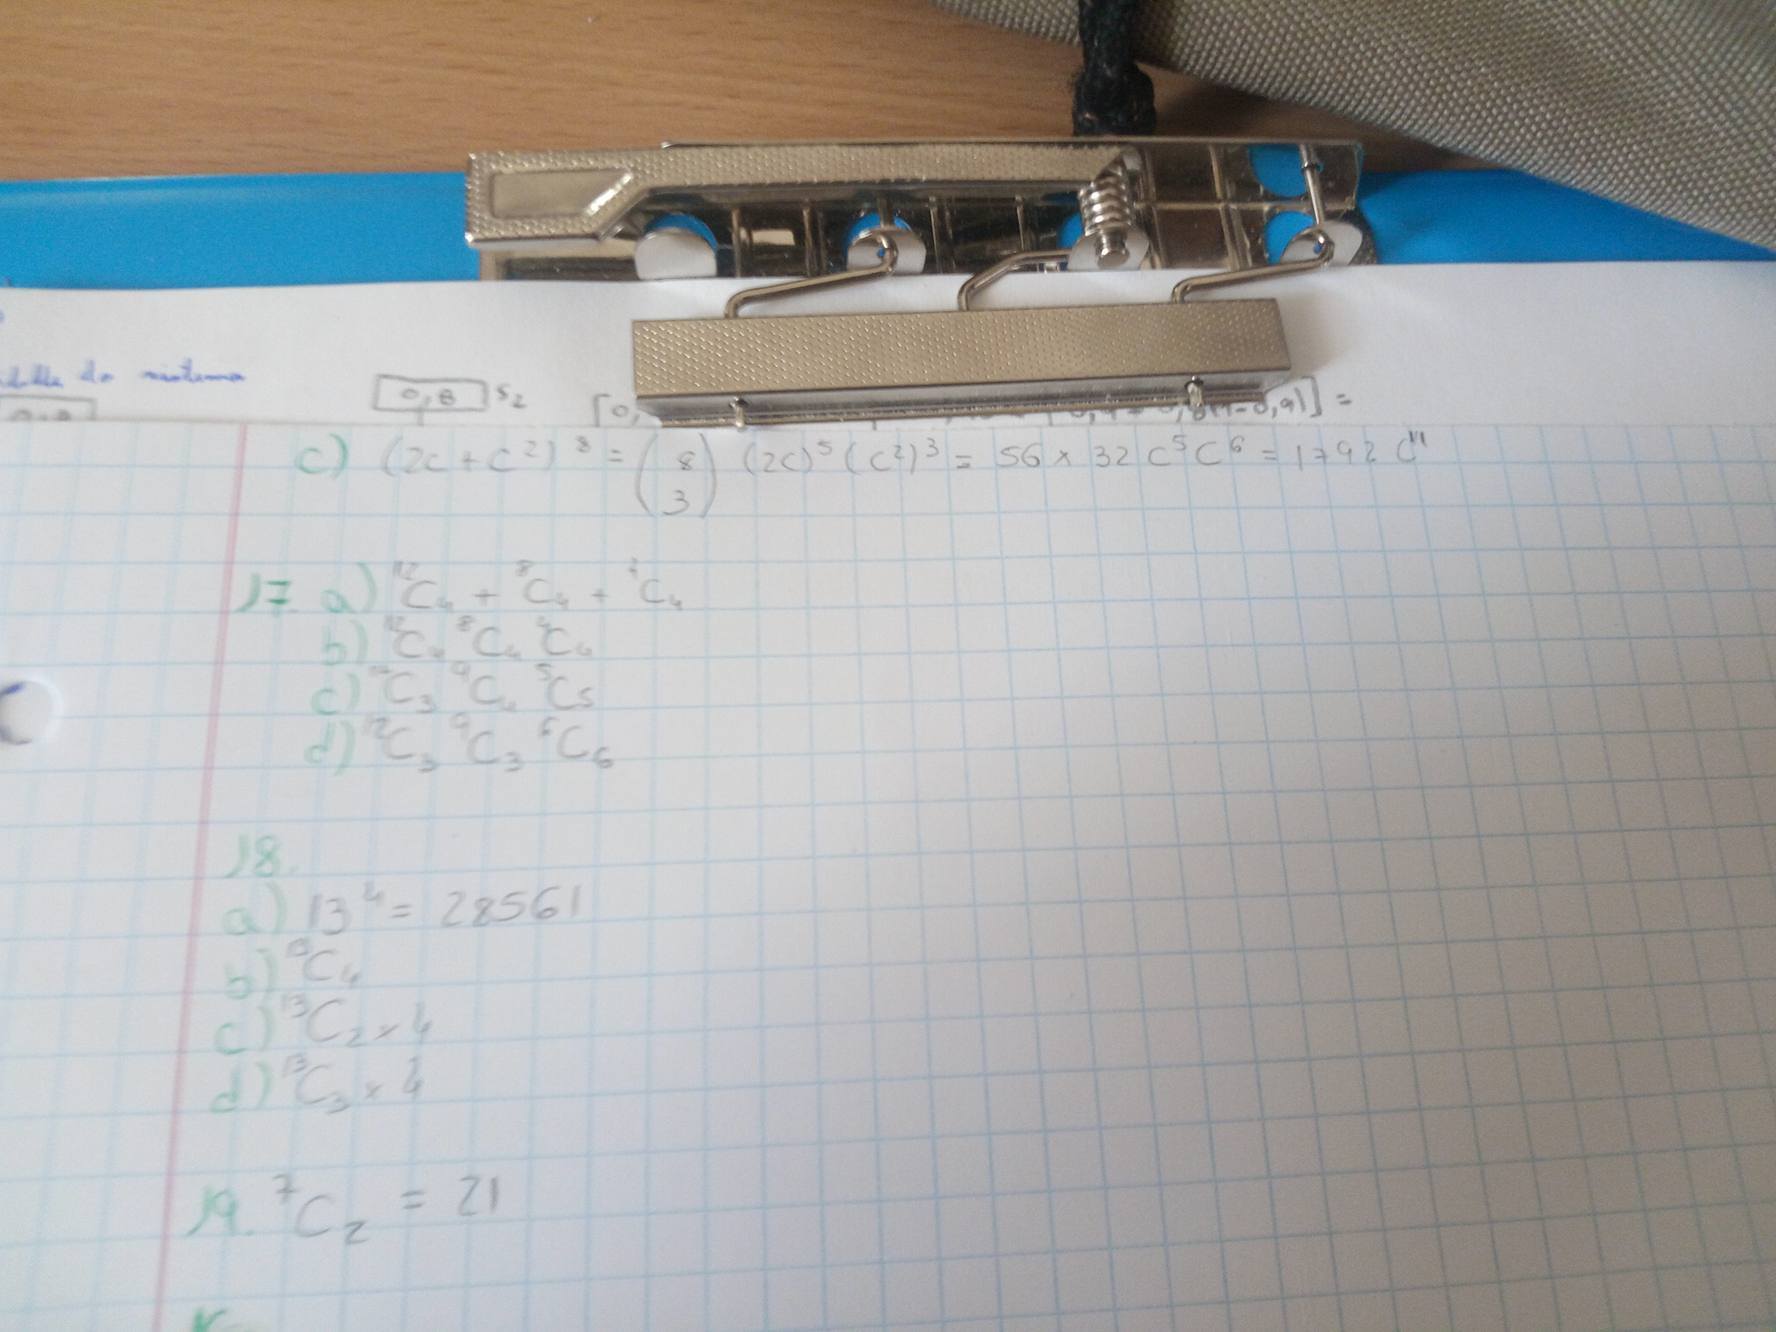 do sistema
0,8 S₂ [0,
0,9)] =
c) (2c + c²)⁸ = (8 3) (2c)⁵ (c²)³ = 56 × 32 c⁵ c⁶ = 1792 c¹¹
17. a) ¹²C₄ + ⁸C₄ + ⁴C₄
b) ¹²C₄ ⁸C₄ ⁴C₄
c) ¹²C₃ ⁹C₄ ⁵C₅
d) ¹²C₃ ⁹C₃ ⁶C₆
18.
a) 13⁴ = 28561
b) ¹³C₄
c) ¹³C₂ × 4
d) ¹³C₃ × 4
19. ⁷C₂ = 21